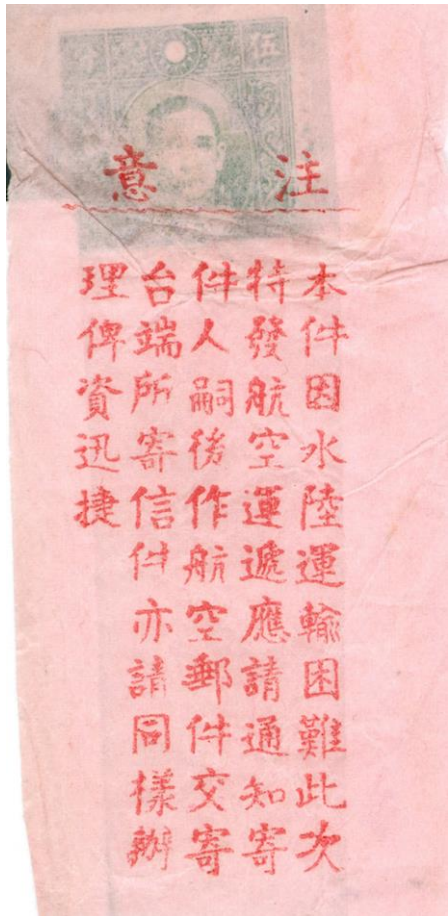 注意
本件因水陸運輸困難此次
特發航空運遞應請通知寄
件人嗣後作航空郵件交寄
台端所寄信件亦請同樣辦
理俾資迅捷
伍